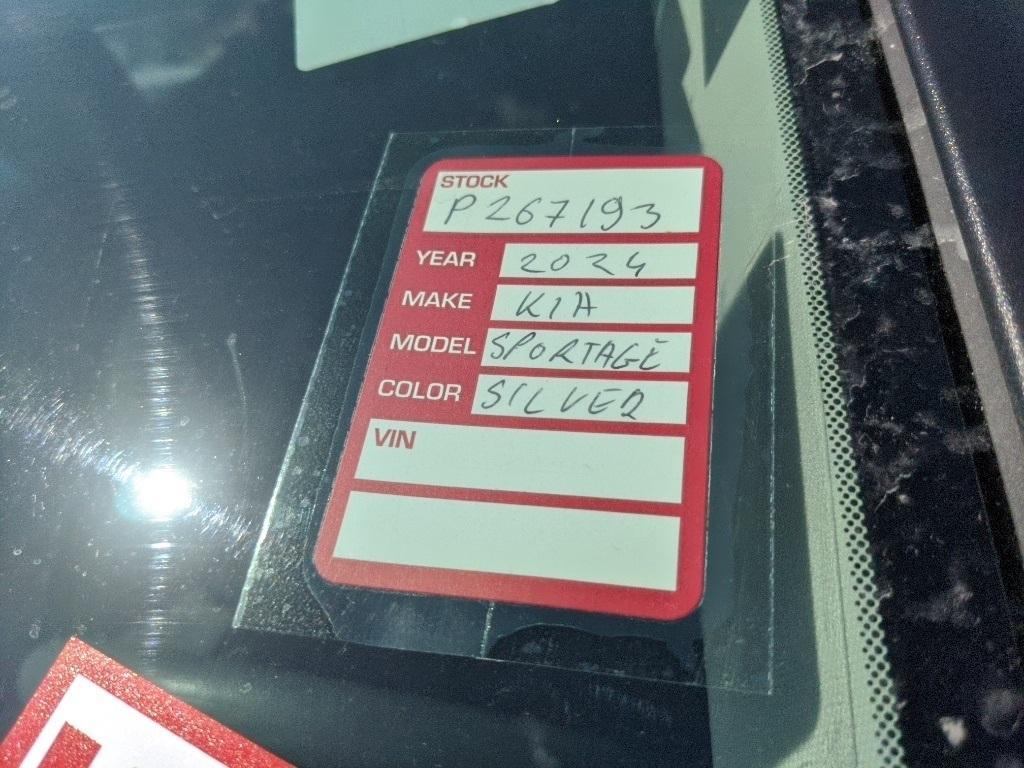 STOCK
P267193
YEAR 2024
MAKE KIA
MODEL SPORTAGE
COLOR SILVER
VIN